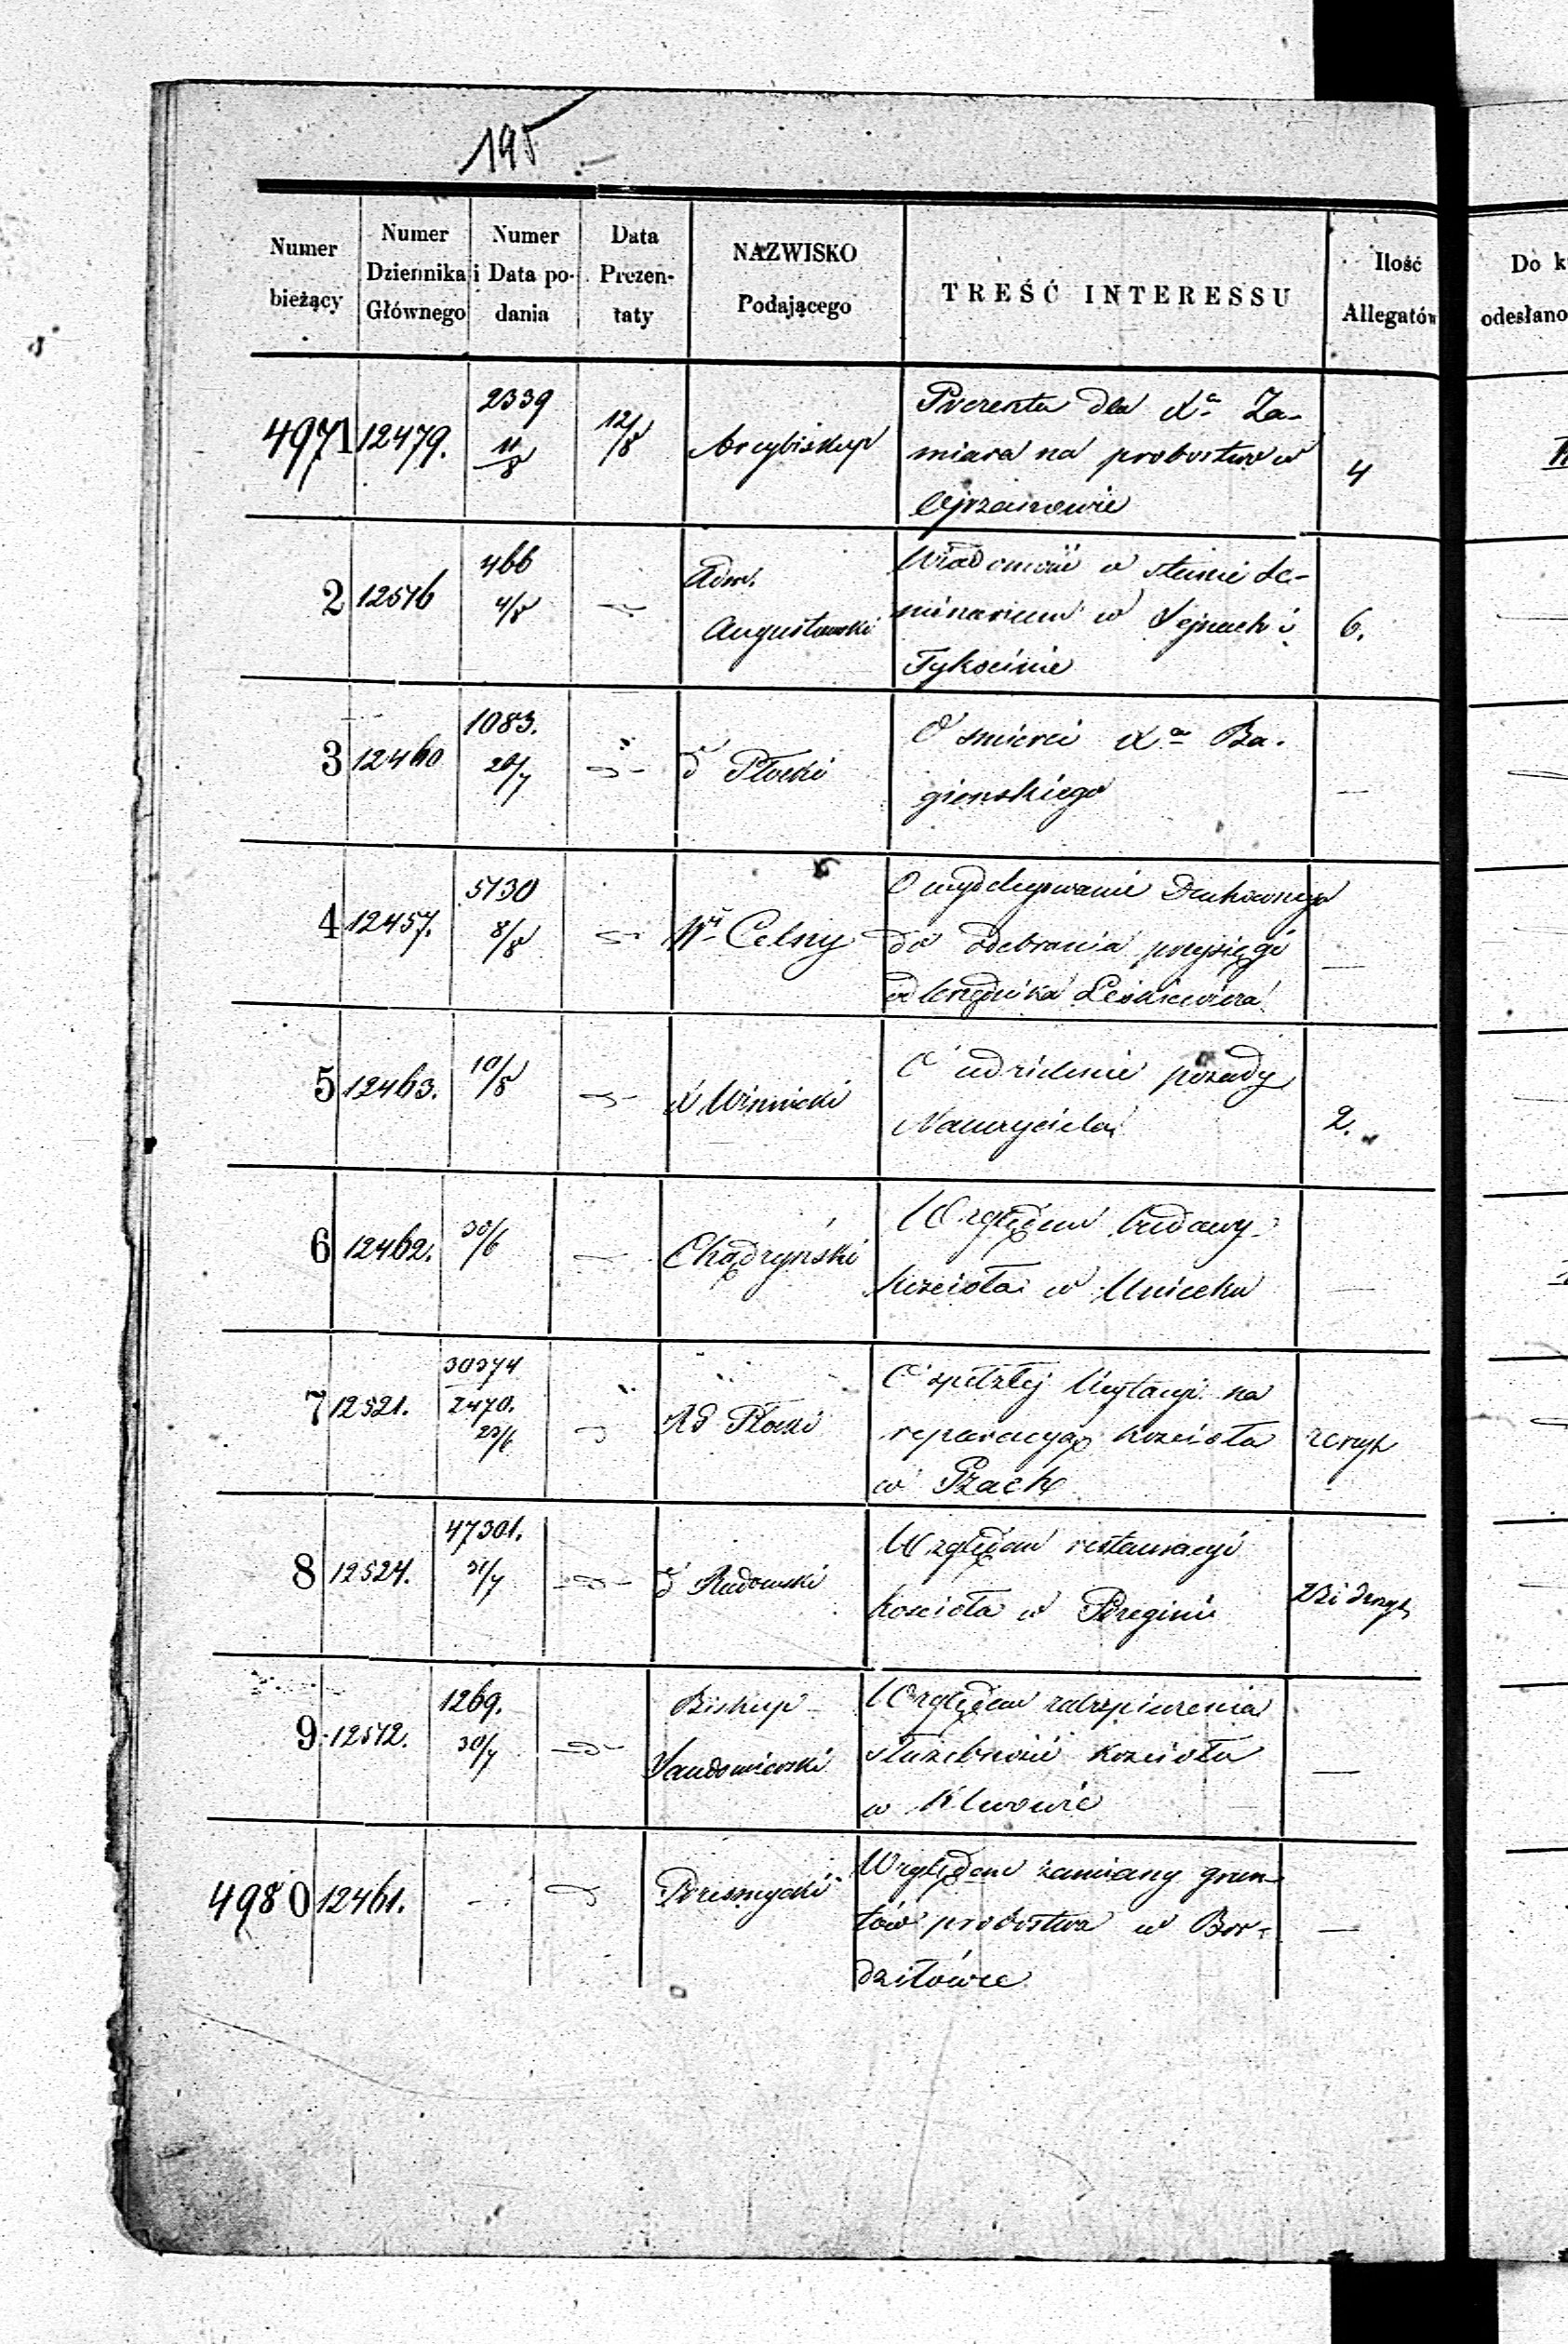 195
Numer bieżący
Numer Dziennika Głównego
Numer i Data podania
Data Prezentaty
NAZWISKO Podającego
TREŚĆ INTERESSU
Ilość Allegatów
Do k
odesłano
4971 12479. 2339 11/8 12/8 Arcybiskup
Prezenta dla Xa Za-
miara na probostwo w
4
2 12516 466 4/8
Adm. Augustowski
Wiadomość o stanie Se-
minarium w Sejnach i
Tykocinie
6.
3 12460 1083. 20/7
d° Płocki
O śmierci Xa Ba-
gienskiego
—
4 12457. 5130 8/8
Celny
O wydelegowanie Duchownego
do odebrania przysięgi
od Urzędnika
—
5 12463. 10/8
X Winnicki
O udzielenie posady
Nauczyciela
2.
6 12462. 30/6
Chądzyński
Względem budowy
kościoła w Unicku
—
7 12521. 30374 2470. 23/6
Rd Płocki
O spełzłej licytacyi na
reparacyą kościoła
w Pzach
zeszyt
8 12524. 47301. 31/7
d° Radomski
Względem restauracyi
kościoła w
9 12512. 1269. 30/7
Biskup
Sandomierski
Względem zabezpieczenia
służebności kościoła
w Klwowie
—
4980 12461.
Przesmycki
Względem zamiany grun-
tów probostwa w Bor-
dziłówce
—